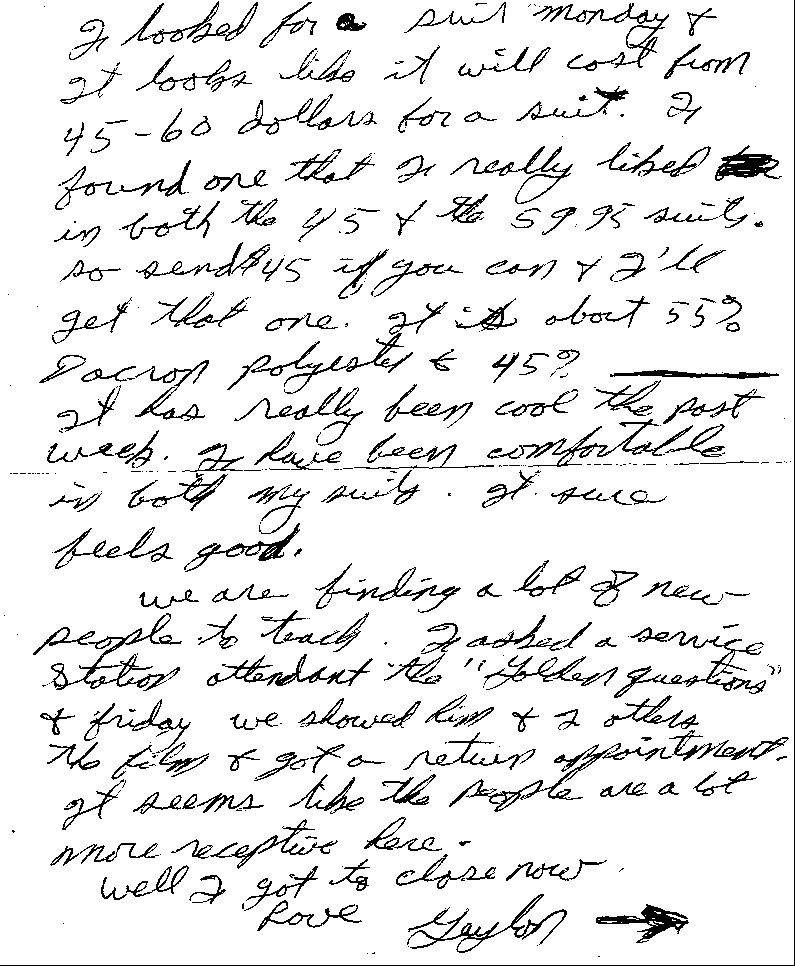 I looked for a suit monday &
It looks like it will cost from
45-60 dollars for a suit. I
found one that I really liked
in both the 45 & the 59.95 suits.
so send $45 if you can & I'll
get that one. It is about 55%
Dacron polyester & 45% ———
It has really been cool the past
week. I have been comfortable
in both my suits. It sure
feels good.
we are finding a lot of new
people to teach. I asked a service
station attendant the "Golden questions"
& friday we showed him & 2 others
the film & got a return appointment.
It seems like the people are a lot
more receptive here.
Well I got to close now.
Love Gaylon →